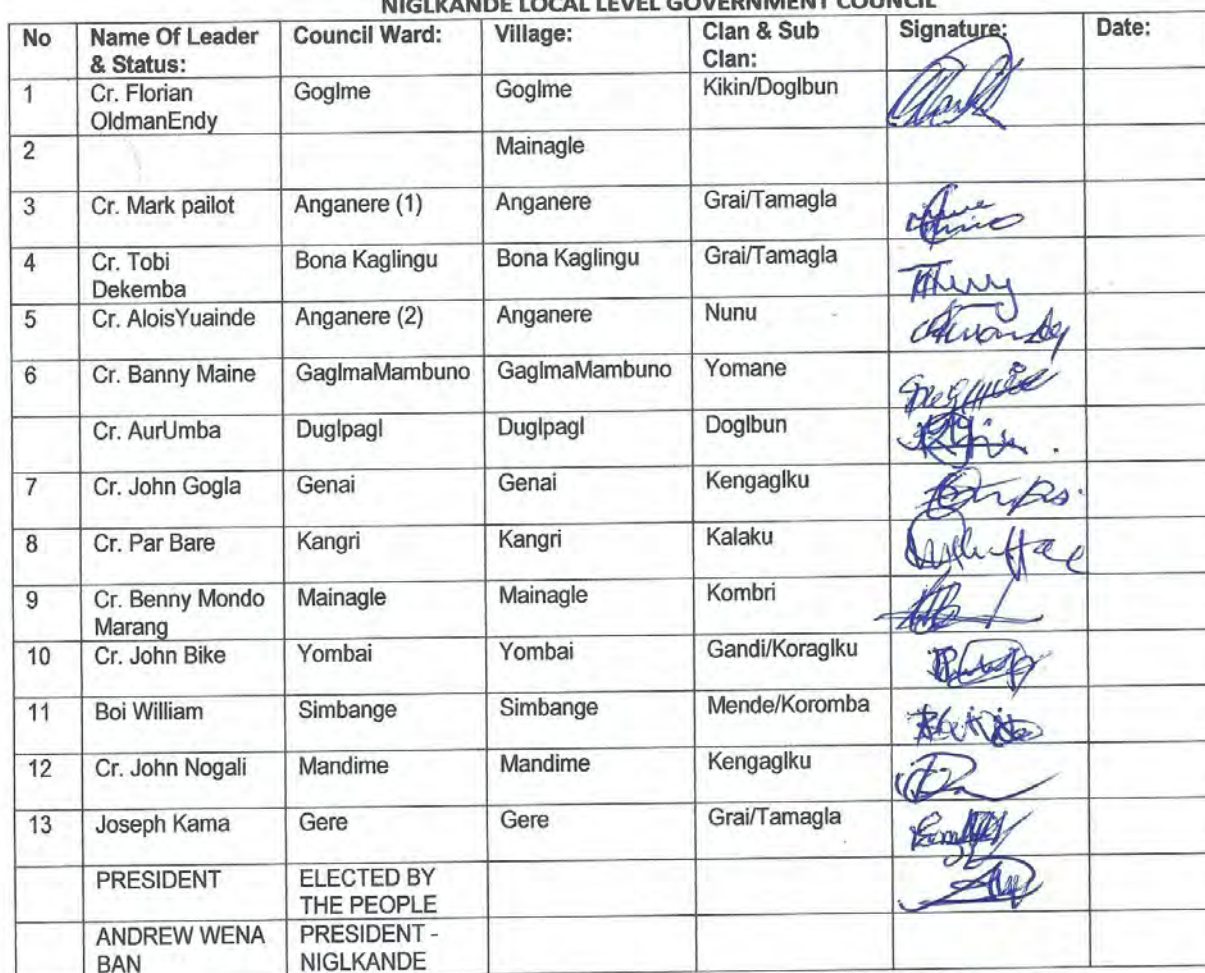 NIGLKANDE LOCAL LEVEL GOVERNMENT COUNCIL
No Name Of Leader & Status: Council Ward: Village: Clan & Sub Clan: Signature: Date:
1 Cr. Florian OldmanEndy Goglme Goglme Kikin/Doglbun
2 Mainagle
3 Cr. Mark pailot Anganere (1) Anganere Grai/Tamagla
4 Cr. Tobi Dekemba Bona Kaglingu Bona Kaglingu Grai/Tamagla
5 Cr. AloisYuainde Anganere (2) Anganere Nunu
6 Cr. Banny Maine GaglmaMambuno GaglmaMambuno Yomane
Cr. AurUmba Duglpagl Duglpagl Doglbun
7 Cr. John Gogla Genai Genai Kengaglku
8 Cr. Par Bare Kangri Kangri Kalaku
9 Cr. Benny Mondo Marang Mainagle Mainagle Kombri
10 Cr. John Bike Yombai Yombai Gandi/Koraglku
11 Boi William Simbange Simbange Mende/Koromba
12 Cr. John Nogali Mandime Mandime Kengaglku
13 Joseph Kama Gere Gere Grai/Tamagla
PRESIDENT ELECTED BY THE PEOPLE
ANDREW WENA BAN PRESIDENT - NIGLKANDE